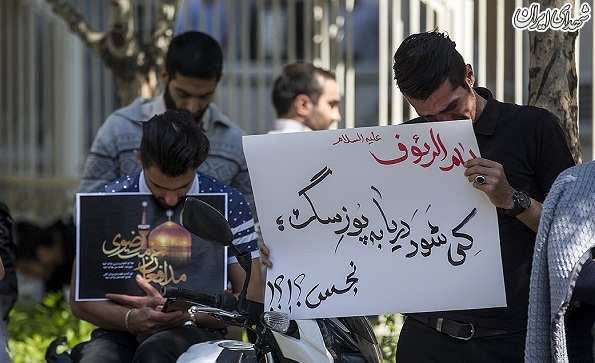 شهدای ایران
امام الرئوف علیه السلام
کی شود دریا به پوز سگ
نجس ؟!؟!
مدافعان حرمت رضوی